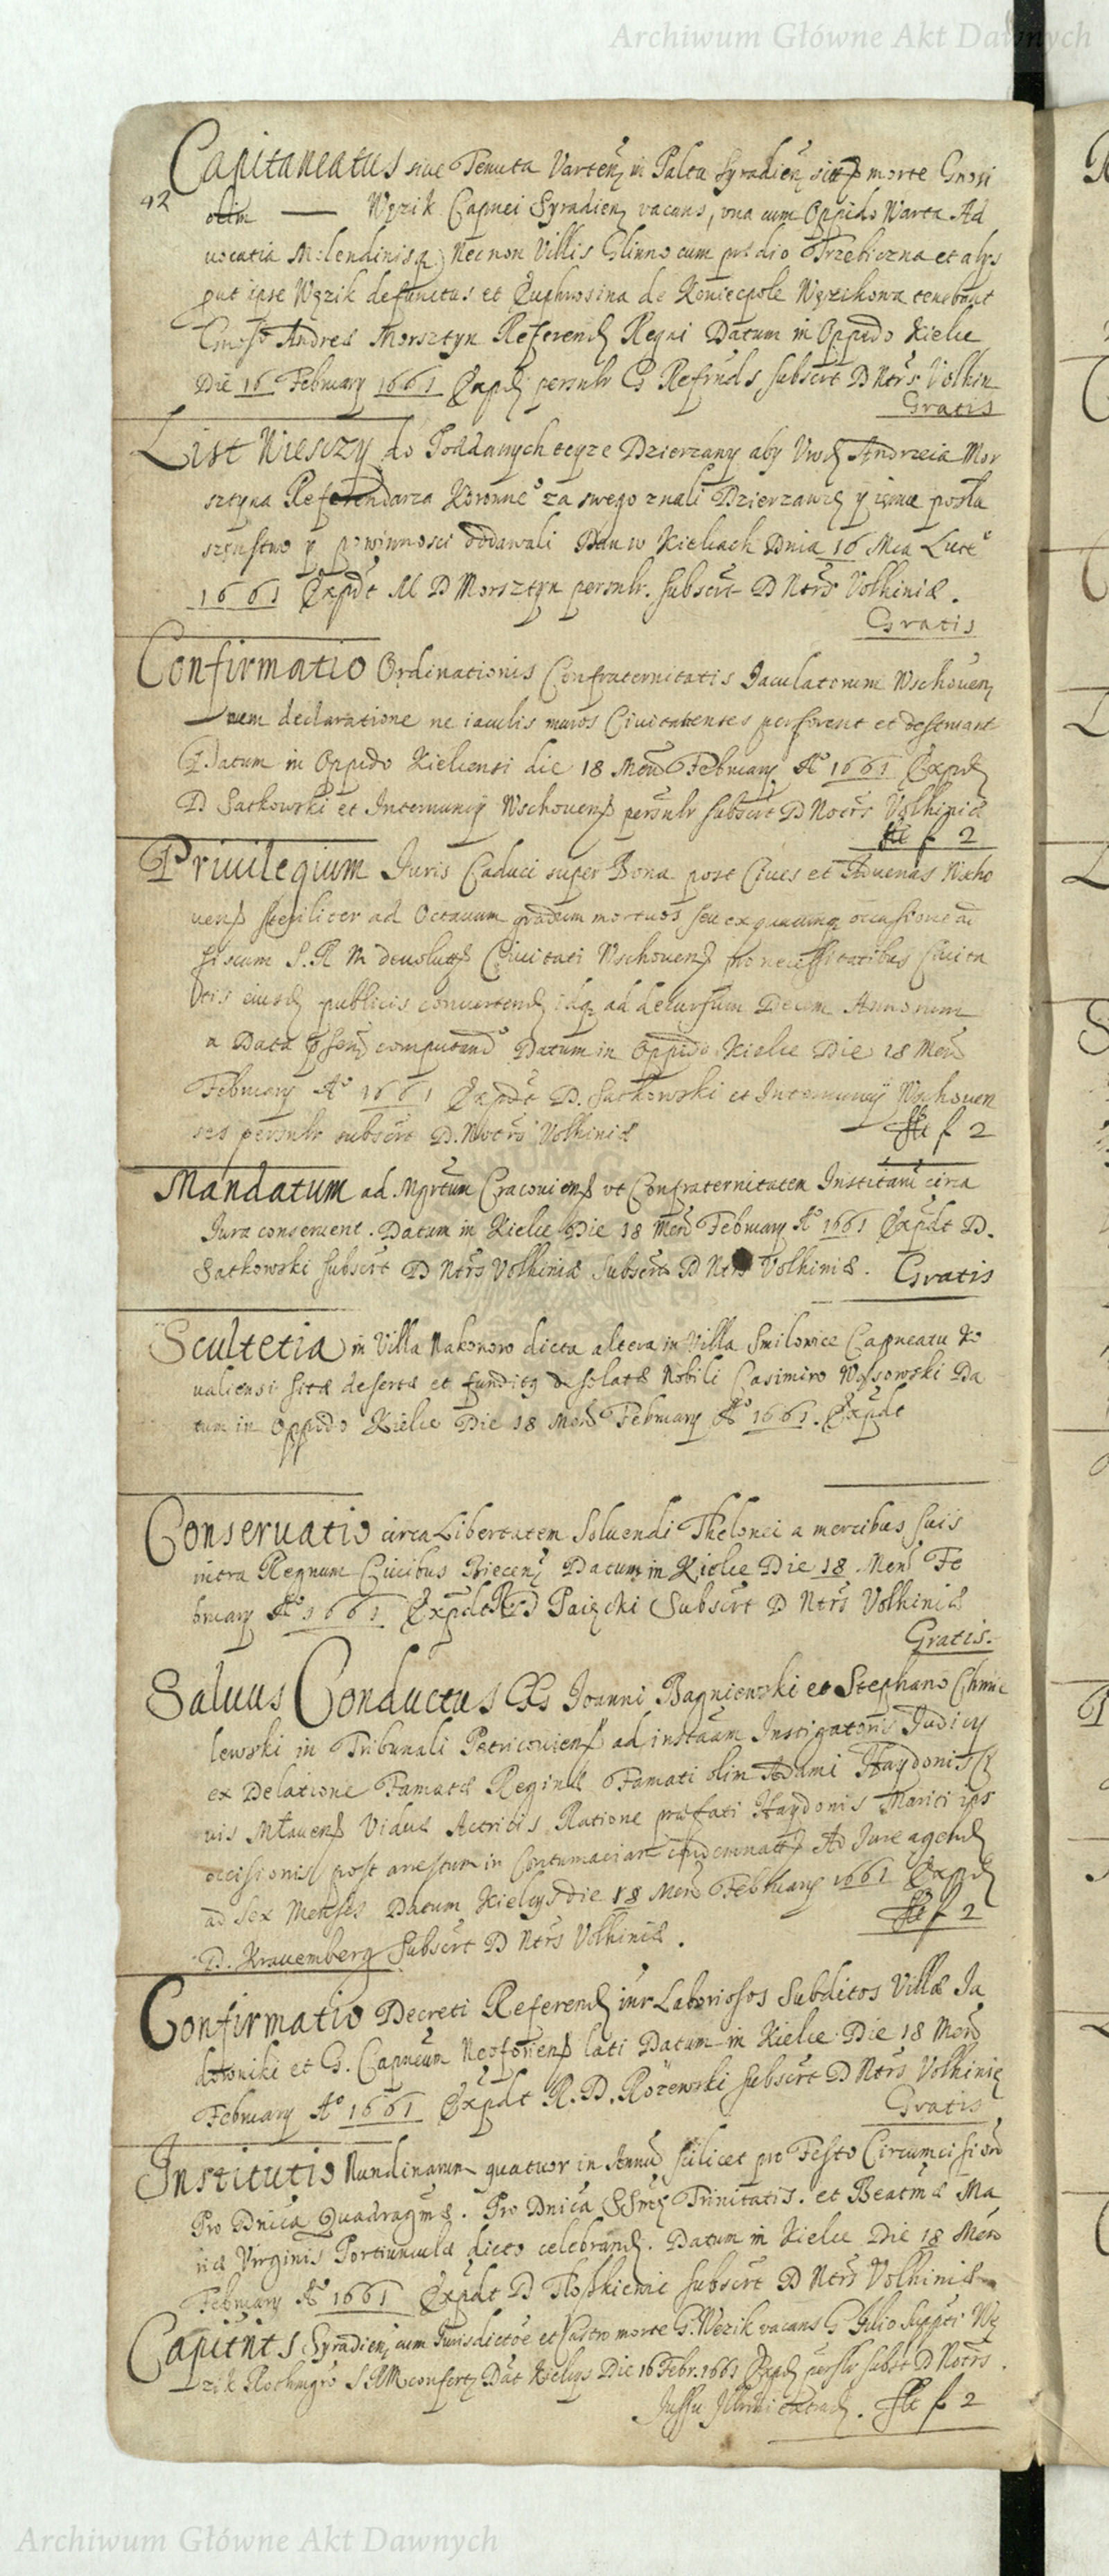 Archiwum Główne Akt Dawnych
Capitaneatus siue Tenuta Varten in Palta Syradien sitt morte Gnosi
42
olim —— Węzik Capnei Syradien vacans, vna cum Oppido Warta Ad
uocatia Molendinisq Necnon Villis Glinno cum prædio Trzebiczna et alys
put ipse Węzik defunctus et Euphrosina de Koniecpole Węzikowa tenebant
Gnoso Andreæ Morsztyn Referend Regni Datum in Oppido Kielce
Die 16 February 1661 Expd persnlr G Refrnds subscrt D Ntrs Volhin
Gratis
List Wieśczy do Poddanych teyze Dzierzawy aby Vrod Andrzeia Mor
sztyna Referendarza Koronneo za swego znali Dzierzawcę y iemu posłu
szenstwo y powinnosci oddawali Dan w Kielcach Dnia 16 Mca Luteo
1661 Expdt M D Morsztyn persnlr. subscrt D Ntrs Volhiniæ.
Gratis
Confirmatio Ordinationis Confraternitatis Iaculatorum Wschouen
num declaratione ne iaculis muros Ciuitatenses perforent et destruant
Datum in Oppido Kielcensi die 18 Mens February Ao 1661 Expd
D Satkowski et Internuncij Wschouens persnlr subscrt D Notrs Volhiniæ
f 2
Priuilegium Iuris Caduci super Bona post Ciues et Aduenas Wscho
uens steriliter ad Octauum gradum mortuos seu ex quacunq occasione ad
fiscum S.R M deuoluts Ciuitati Wschouens pro necessitatibus Ciuita
tis eiusd publicis conuertend idq ad decursum Decem Annorum
a Data psens computand Datum in Oppido Kielce Die 18 Mens
February Ao 1661 Expdt D. Satkowski et Internuncij Wschouen
ses persnlr subscrt D. Notrs Volhiniæ
f 2
Mandatum ad Mgrtum Craconiens vt Confraternitatem Institarum circa
Iura conseruent. Datum in Kielce Die 18 Mens February Ao 1661 Expdt D.
Satkowski subscrt D Ntrs Volhiniæ Subscrt D Ntrs Volhiniæ. Gratis
Scultetia in Villa Nakonowo dicta altera in Villa Smilowice Capneatu Ko
ualiensi sitæ desertæ et funditq desolatæ Nobili Casimiro Wąsowski Da
tum in Oppido Kielce Die 18 Mens February Ao 1661. Expdt
Conseruatio circa Libertatem Soluendi Thelonei a mercibus suis
intra Regnum Ciuibus Biecen Datum in Kielce Die 18 Mens Fe
bruary Ao 1661 Expdt R D Paięcki Subscrt D Ntrs Volhiniæ
Gratis.
Saluus Conductus Ioanni Bagniewski et Stephano Chmie
lewski in Tribunali Petricouiens ad instaam Instigatoris Iudicy
ex Delatione Famatæ Reginæ Famati olim Adami Haydonis
uis Mlauens Viduæ Actricis Ratione præfati Haydonis Mariti ips
occisionis post arrestum in Contumaciam condemnatt Ad Iure agend
ad Sex Menses Datum Kielcys die 18 Mens February 1661 Expd
f 2
D. Krauemberg Subscrt D Ntrs Volhiniæ.
Confirmatio Decreti Referend intr Laboriosos Subditos Villæ Ja
downiki et G. Capneum Neoforiens lati Datum in Kielce Die 18 Mens
February Ao 1661 Expdt R. D. Rożewski subscrt D Ntrs Volhiniæ
Gratis
Institutio Nundinarum quatuor in Annu scilicet pro Festo Circumcisions
Pro Dnica Quadragmæ. Pro Dnica SSmæ Trinitatis. et Beatmæ Ma
riæ Virginis Portiunculæ dicto celebrand. Datum in Kielce Die 18 Mens
February Ao 1661 Expdt D subscrt D Ntrs Volhiniæ
Capitnts Syradien cum Iurisdictoe et Castro morte G. Wezik vacans G Filio Suppti Wę
zik Rothmgro S R M confert Dat Kielcys Die 16 Febr. 1661 Expd perslr subst D Notrs.
Jussu Illrmi. f 2
Archiwum Główne Akt Dawnych